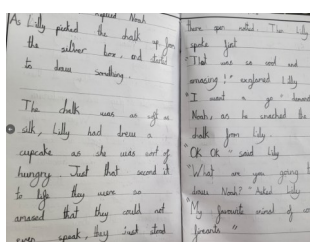 replied Noah
As Lilly picked the chalk up from
the silver box, and started
to draw somthing.
The chalk was as soft as
silk, Lilly had drew a
cupcake as she was sort of
hungry. Just that second it
to life they were so
amased that they could not
even speak, they just stood
there spen rooted. Tho Lilly
spoke first
"That was so cool and
amasing!" explained Lilly
"I want a go" demand
Noah, as he snached the
chalk from Lilly.
"OK OK" said Lilly
"What are you going to
draw Noah?" Asked Lilly
"My favourite animal of